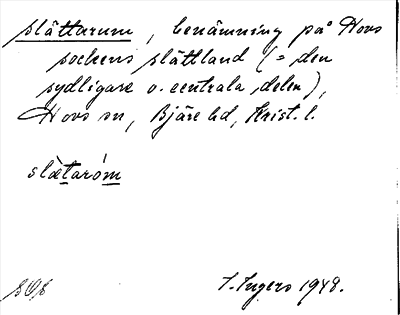 slättarum, benämning på Hovs
sockens slättland (= den
sydligare o. centrala delen),
Hovs sn, Bjäre hd, Krist. l.
slätaróm
I. Ingers 1948.